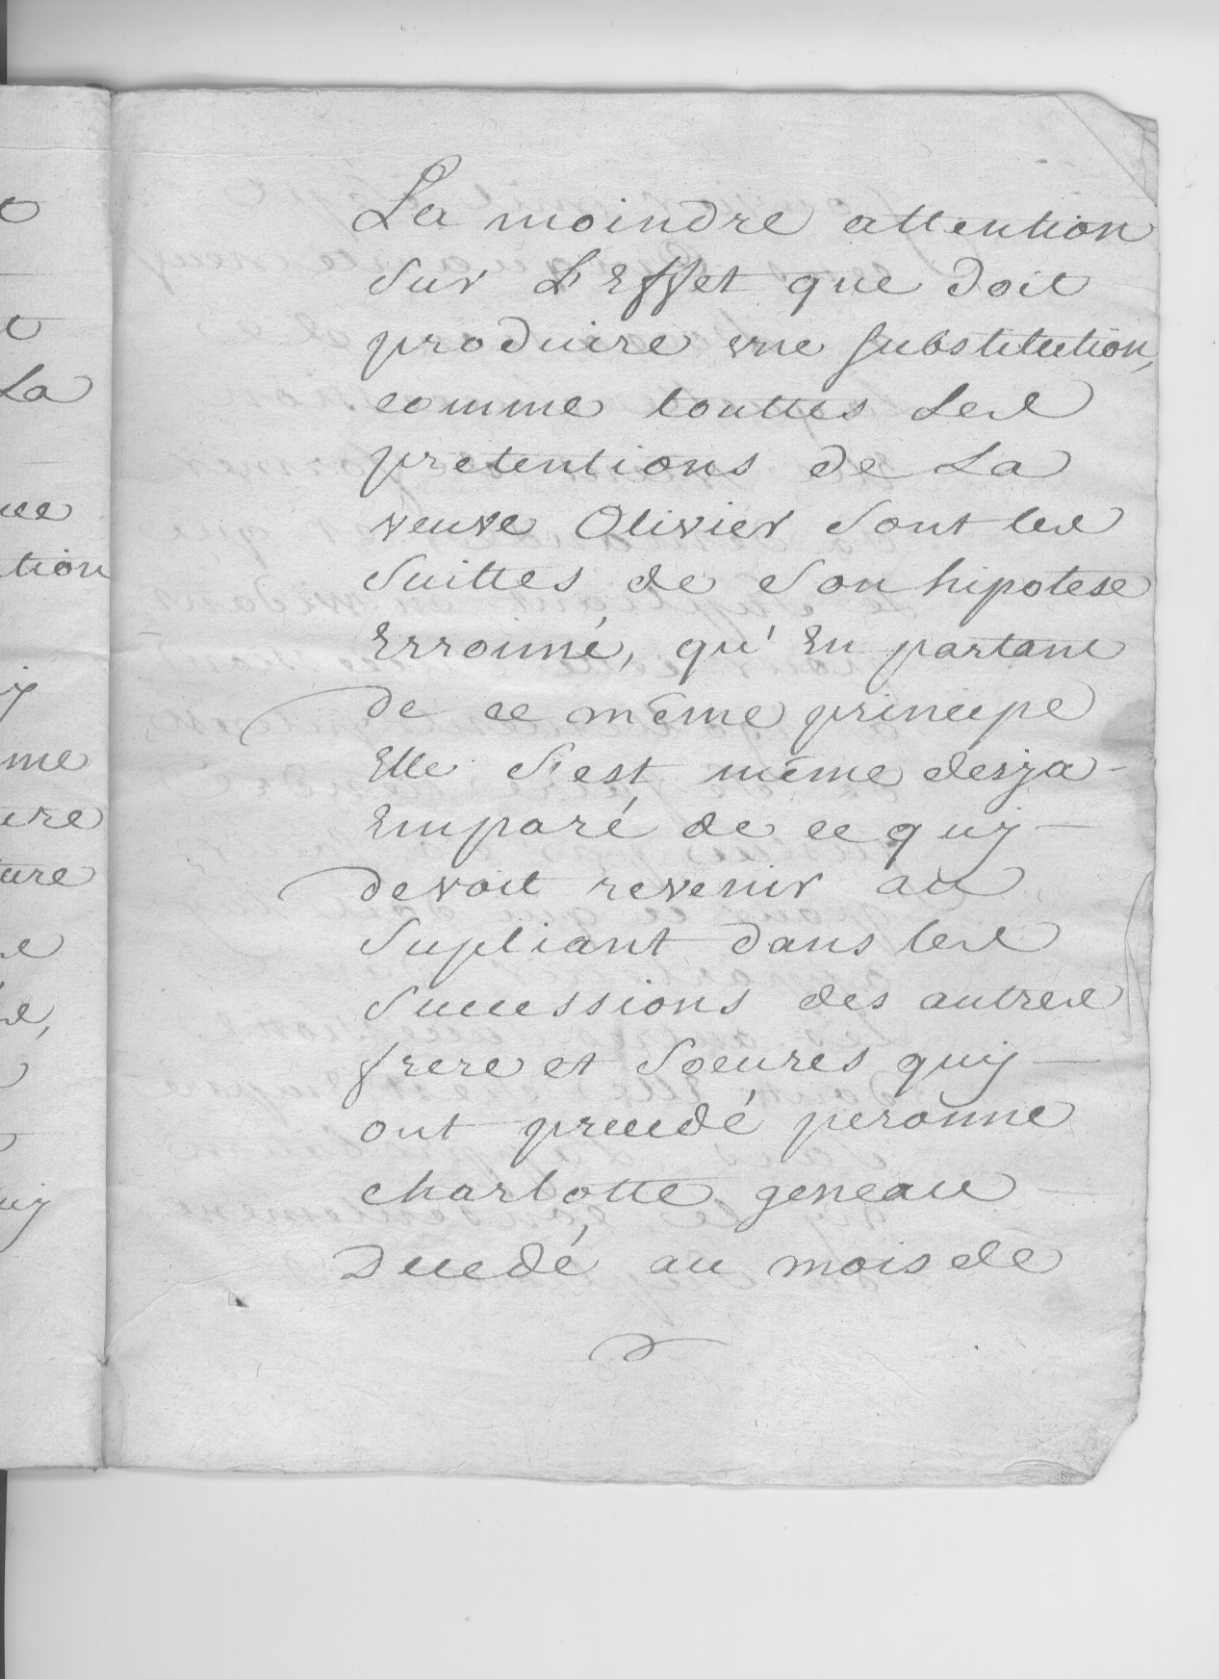 La moindre attention
sur L'Effet que doit
produire une substitution,
comme touttes les
pretentions de La
veuve Olivier sont les
suittes de son hipotese
Erroinné, qu'En partant
de ce même principe
Elle s'est même desja
Emparé de ce quy
devoit revenir au
supliant dans les
successions des autres
frere et soeures quy
ont precedé peronne
charlotte geneau
Decedé au mois de